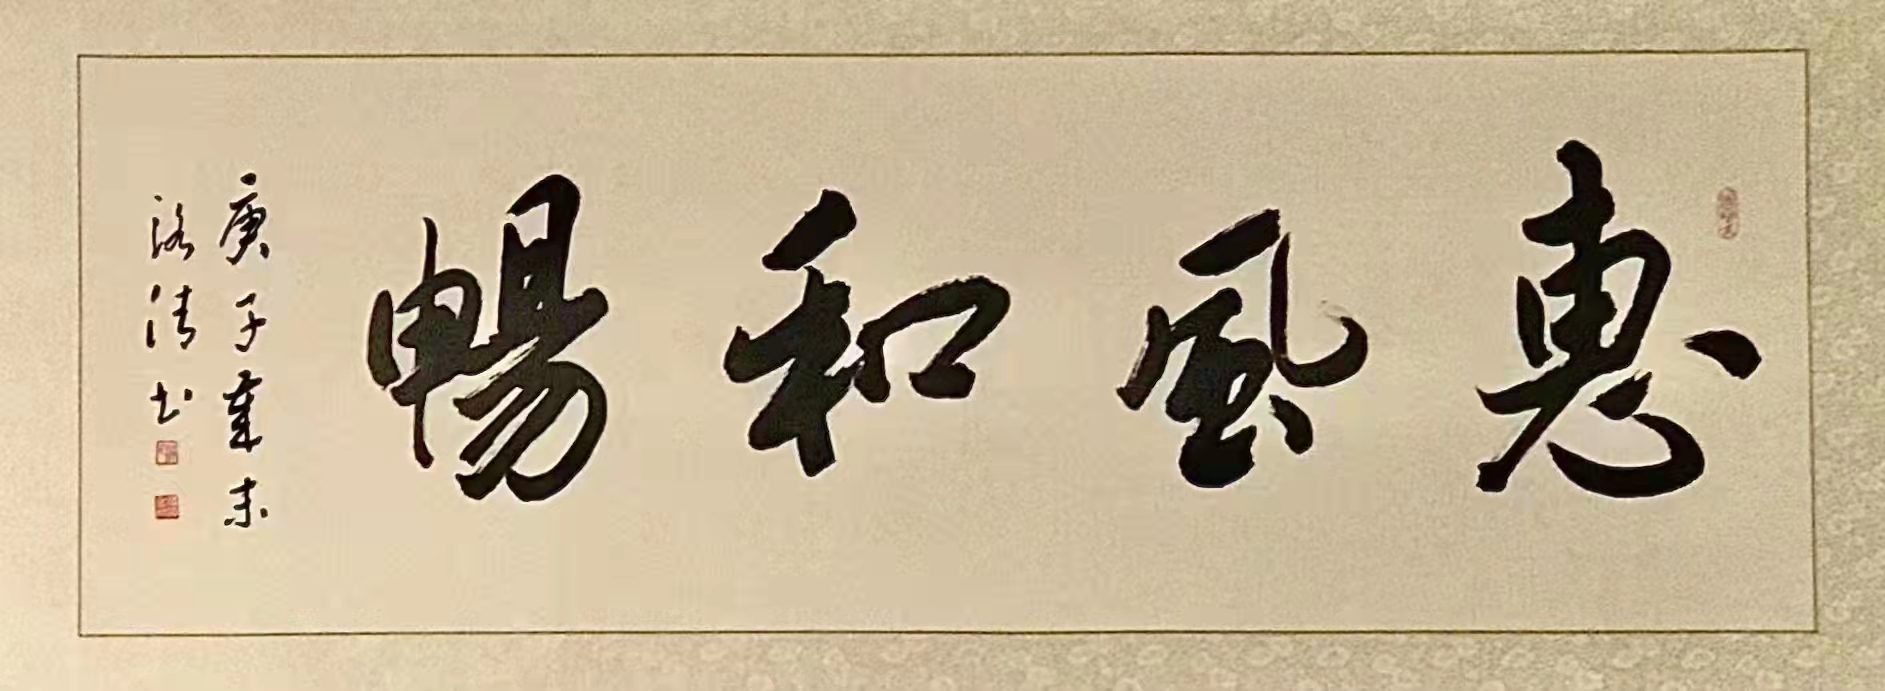 惠風和暢
庚子夏末
洛清书